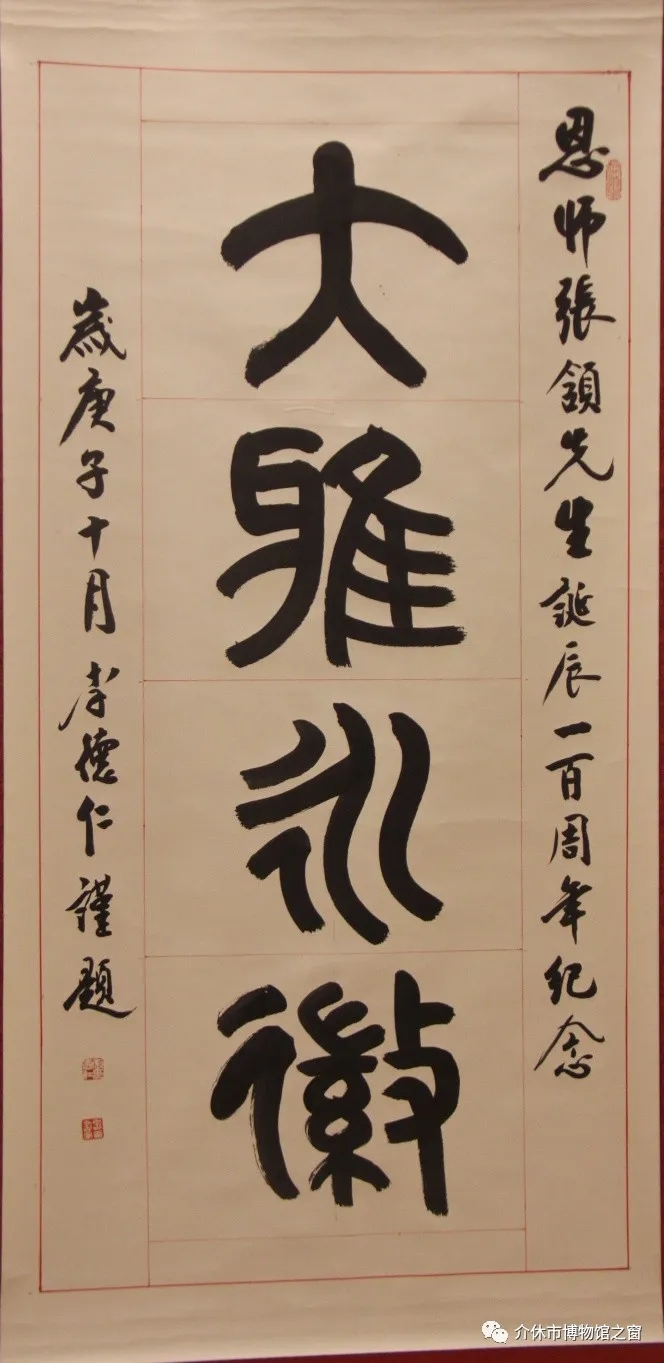 恩师張頷先生誕辰一百周年纪念
大雅永徽
歲庚子十月李德仁謹題
介休市博物馆之窗